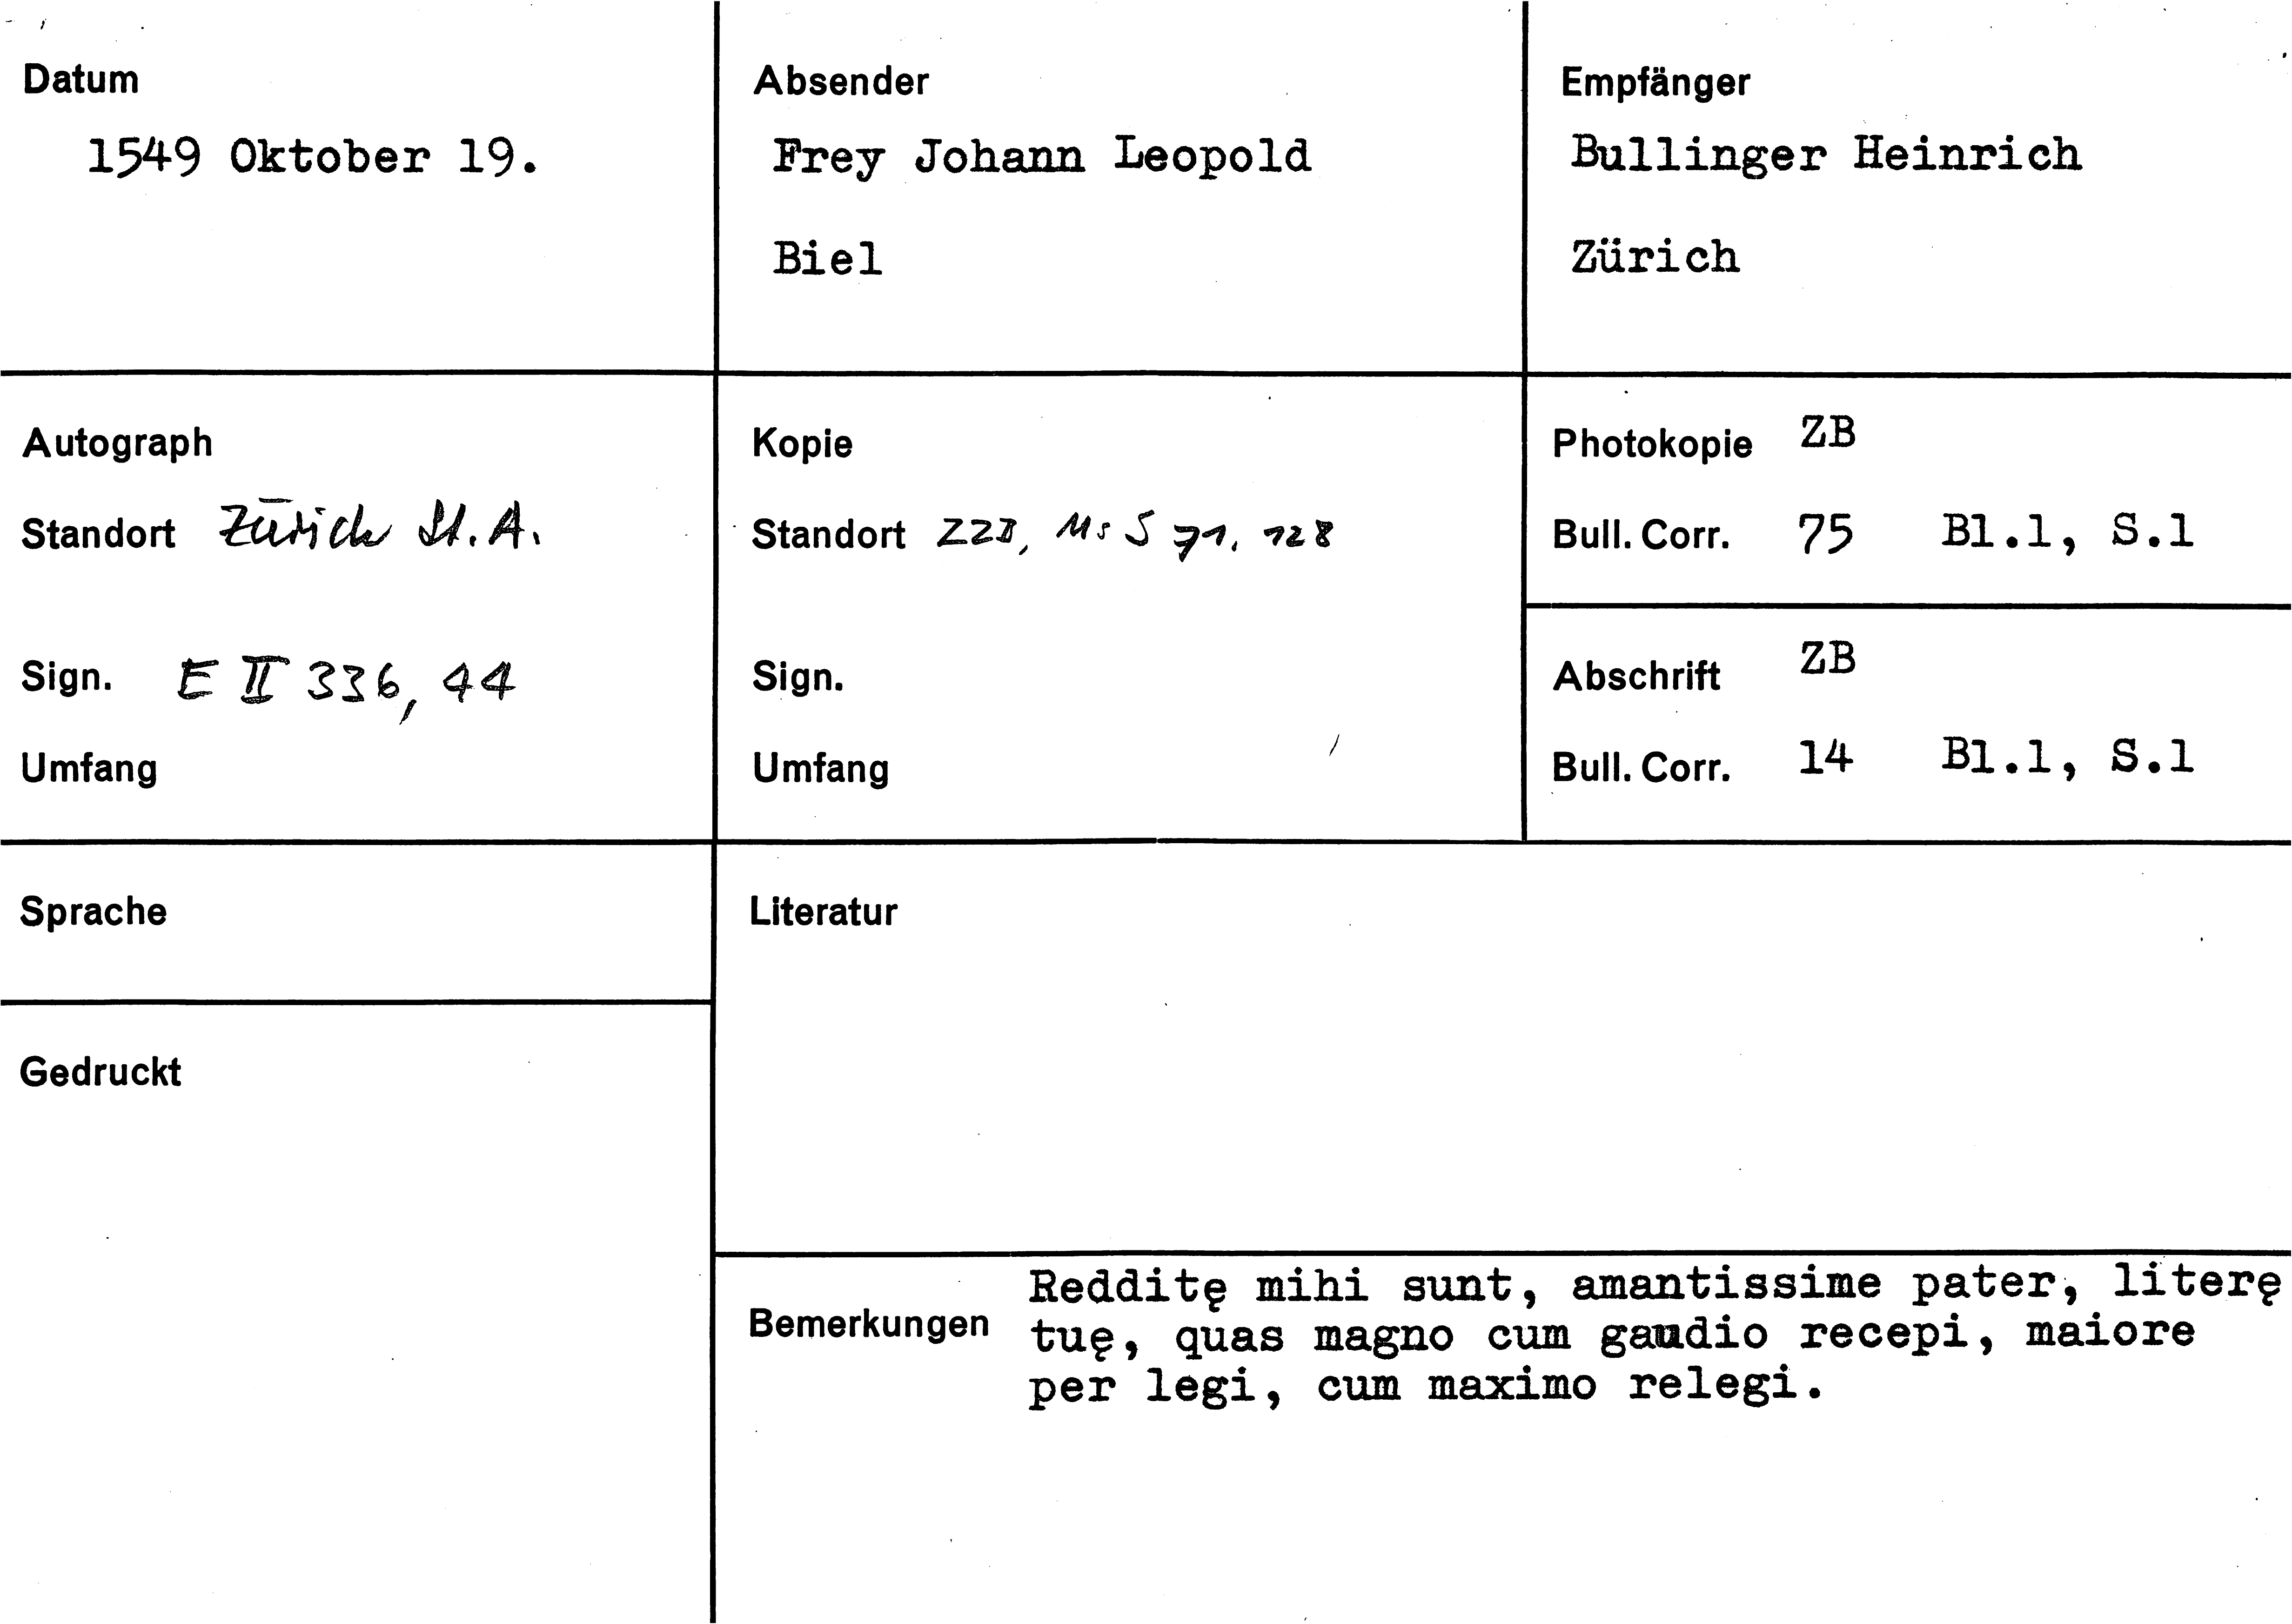 Datum
1549 Oktober 19.
Absender
Frey Johann Leopold
Biel
Empfänger
Bullinger Heinrich
Zürich
Autograph
Standort Zürich St. A.
Sign. E II 336, 44
Umfang
Kopie
Standort ZZB, Ms S 71, 128
Sign.
Umfang
Photokopie ZB
Bull. Corr. 75 Bl.1, S.1
Abschrift ZB
Bull. Corr. 14 Bl.1, S.1
Sprache
Gedruckt
Literatur
Bemerkungen
Redditę mihi sunt, amantissime pater, literę
tuę, quas magno cum gaudio recepi, maiore
per legi, cum maximo relegi.